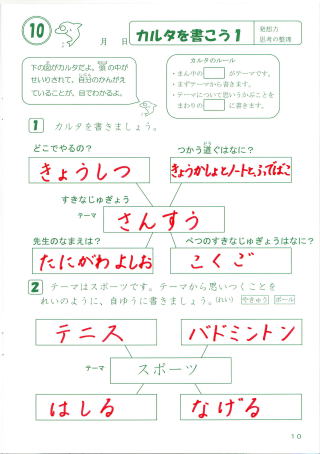 10
月 日
カルタを書こう1
発想力
思考の整理
下の図がカルタだよ。頭の中が
せいりされて、自分のかんがえ
ていることが、目でわかるよ。
カルタのルール
・まん中の□がテーマです。
・まずテーマから書きます。
・テーマについて思いうかぶことを
まわりの□に書きます。
1 カルタを書きましょう。
どこでやるの?
つかう道ぐはなに?
きょうしつ
きょうかしょとノートと、ふでばこ
すきなじゅぎょう
テーマ
さんすう
先生のなまえは?
べつのすきなじゅぎょうはなに?
たにがわよしお
こくご
2 テーマはスポーツです。テーマから思いつくことを
れいのように、自ゆうに書きましょう。(れい) やきゅう ボール
テニス
バドミントン
テーマ
スポーツ
はしる
なげる
10